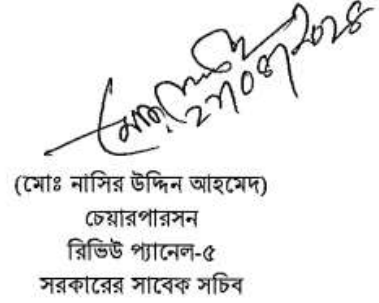 (মোঃ নাসির উদ্দিন আহমেদ)
চেয়ারপারসন
রিভিউ প্যানেল-৫
সরকারের সাবেক সচিব